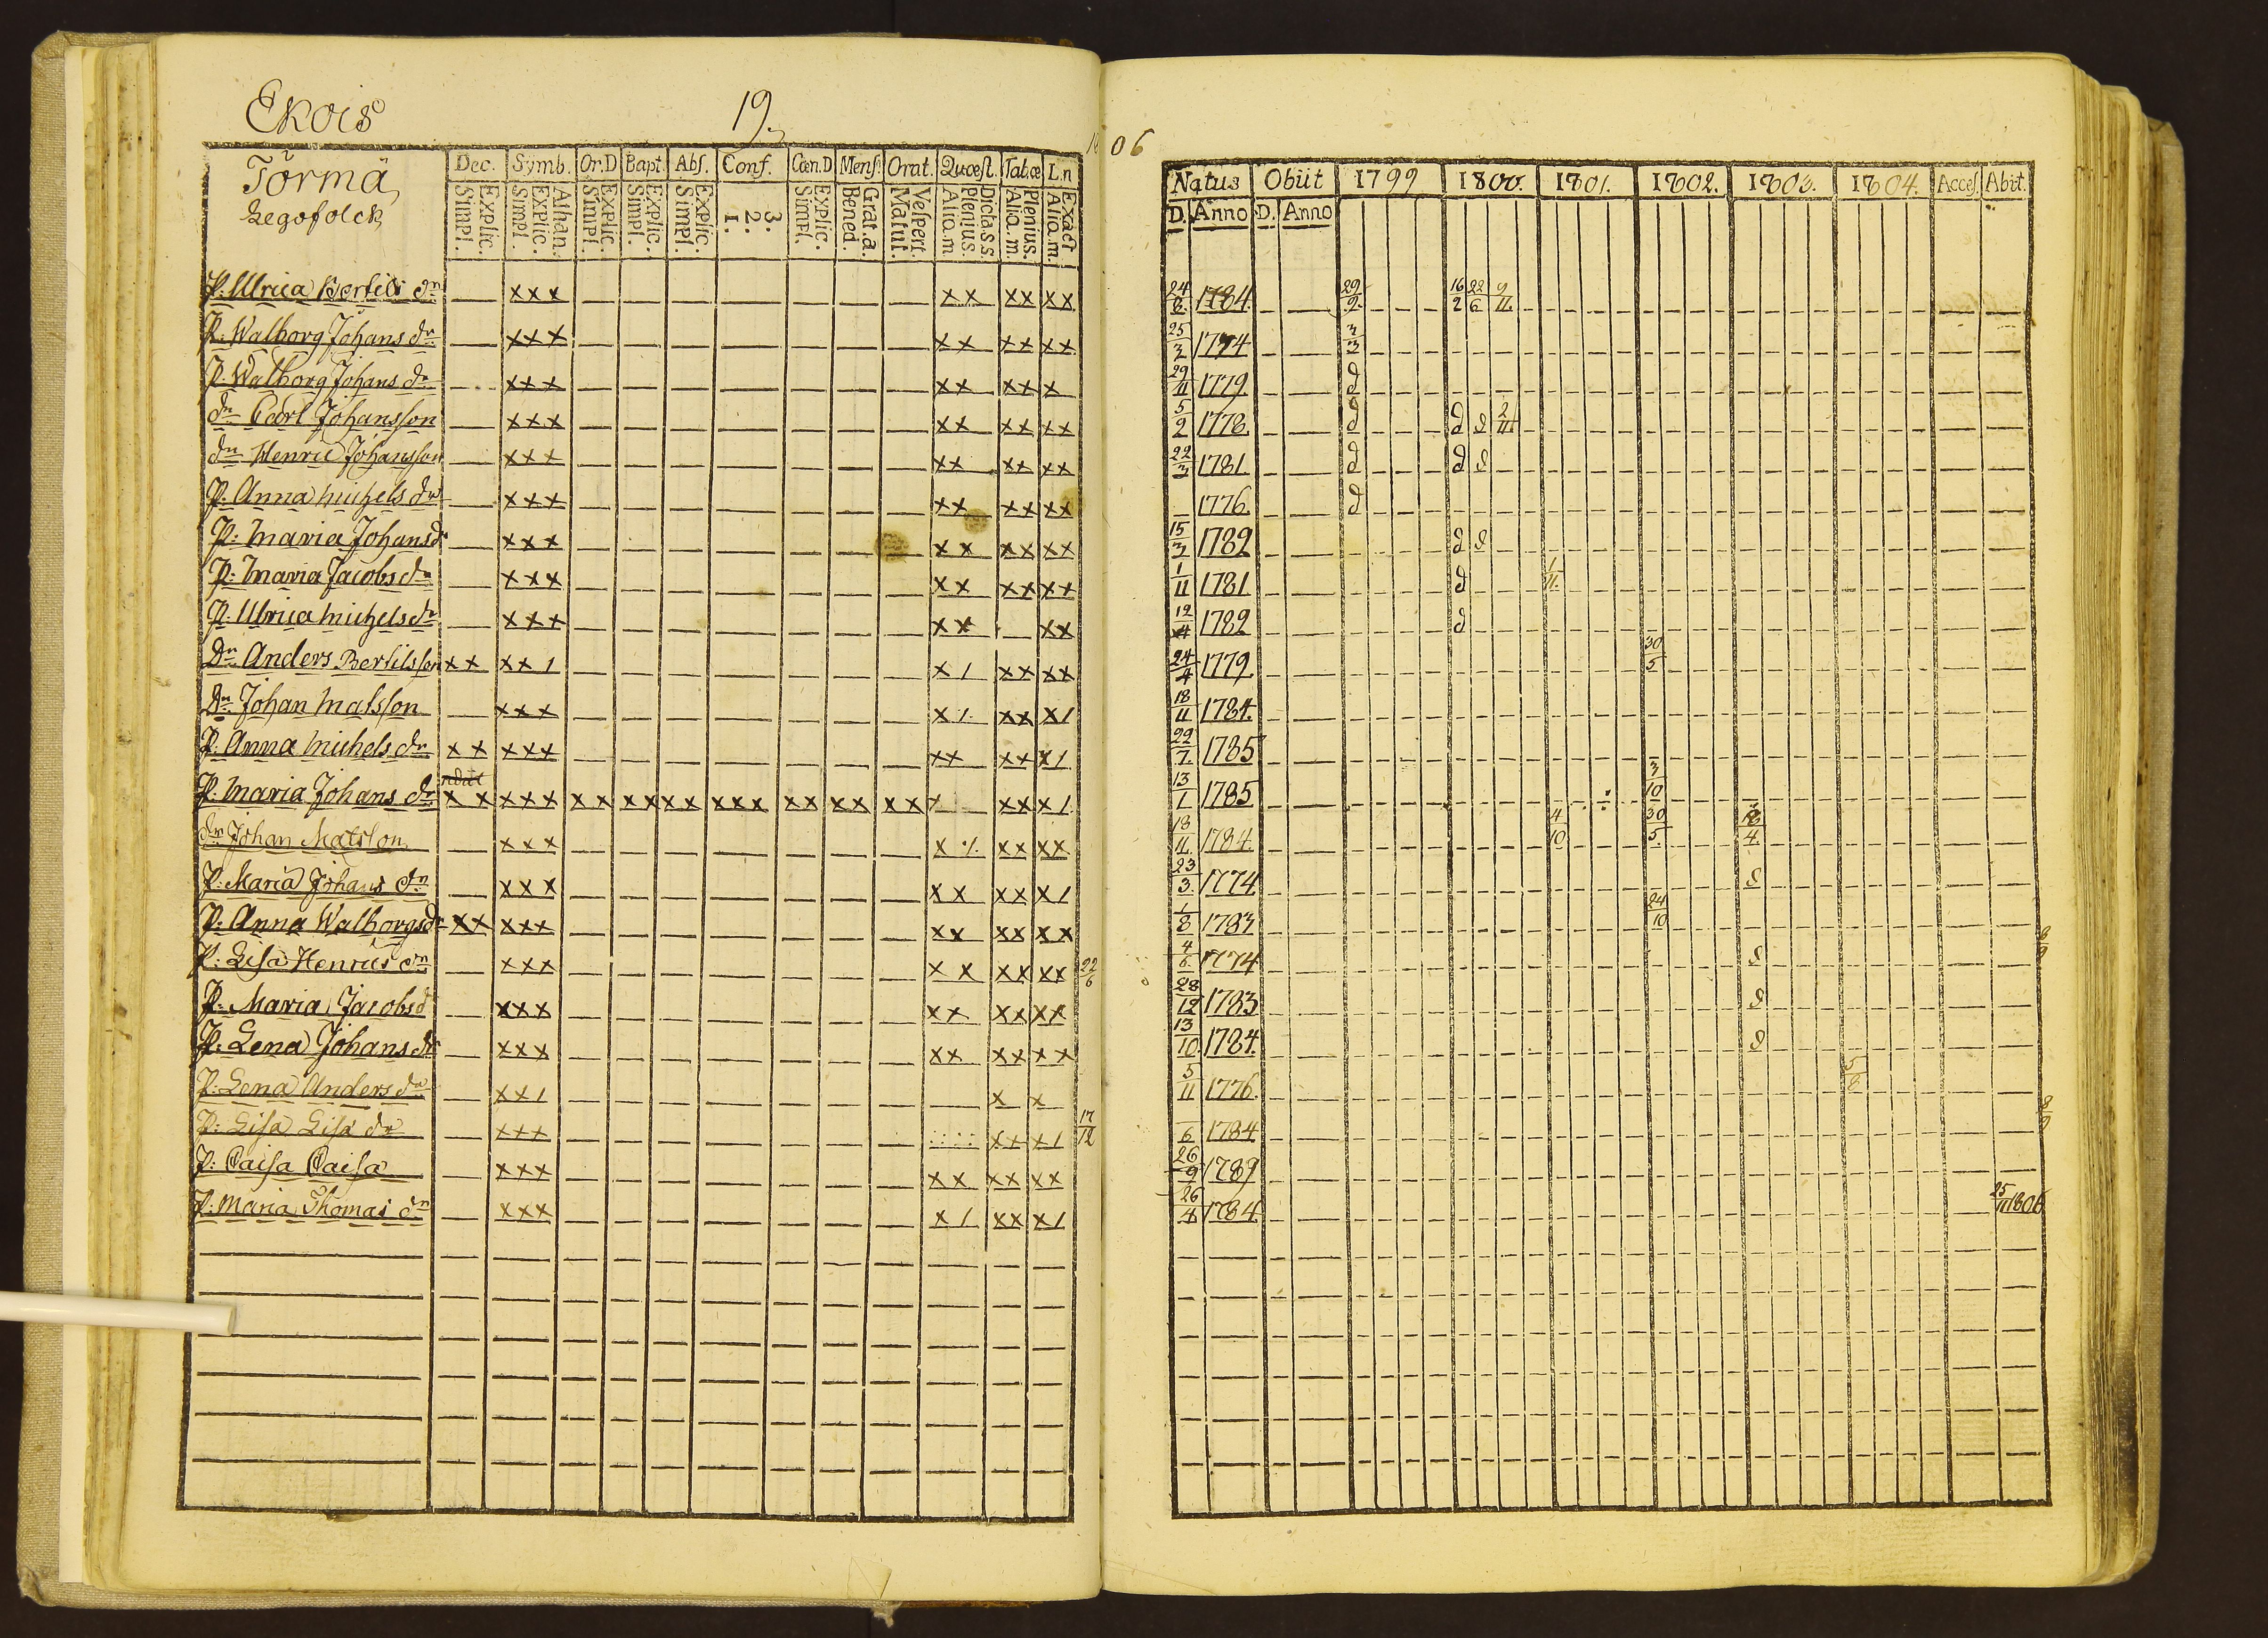 Ekois 19.
Törmä
Legofolck
Dec. Symb. Or.D Bapt. Abs. Conf. Cœn.D Mens. Orat. Quœst. Tab.œ L.n
Explic. Simpl. Athan. Explic. Simpl. Explic. Simpl. Explic. Simpl. Explic. Simpl. 3. 2. 1. Explic. Simpl. Grat.a. Bened. Vespert. Matut. Dicta.s.s. Plenius. Aliq.m Plenius. Aliq.m. Exact Aliq.m.
P. Ulrica Bertils dr — xxx — — — — — — — xx xx xx
P. Walborg Johans dr — xxx — — — — — — — xx xx xx
P. Walborg Johans dr — xxx — — — — — — — xx xx x
dr Carl Johansson — xxx — — — — — — — xx xx xx
dr Henric Johansson — xxx — — — — — — — xx xx xx
P. Anna Michels dr — xxx — — — — — — — xx xx xx
P. Maria Johansd — xxx — — — — — — — xx xx xx
P. Maria Jacobs dr — xxx — — — — — — — xx xx xx
P. Ulrica Michels dr — xxx — — — — — — — xx — xx
Dr Anders Bertilsson xx xx1 — — — — — — — x1 xx xx
Dr Johan Matsson — xxx — — — — — — — x1 xx x1
P. Anna Michels dr xx xxx — — — — — — — xx xx x1
P. Maria Johans dr xx xxx xx xx xx xxx xx xx xx x xx x1
dr Johan Matsson — xxx — — — — — — — x ·/. xx xx
P. Maria Johans dr — xxx — — — — — — — xx xx x1
P. Anna Walborgsdr xx xxx — — — — — — — xx xx xx
P. Lisa Henrics dr — xxx — — — — — — — xx xx xx 22/6
P. Maria Jacobsd — xxx — — — — — — — xx xx xx
P. Lena Johans dr — xxx — — — — — — — xx xx xx
P. Lena Anders dr — xx1 — — — — — — — — x x
P. Lisa Lisä dr — xxx — — — — — — — xx x1 17/12
P. Caisa Caisa — xxx — — — — — — — xx xx xx
P. Maria Thomas dr — xxx — — — — — — — x1 xx x1
1806
Natus Obiit 1799 1800. 1801. 1802. 1803. 1804. Acces. Abit.
D. Anno D. Anno
24/8 1784. 29/9 16/2 22/6 9/11
25/3 1774 3/3
29/11 1779. d
5/2 1778. d d d 2/11
22/3 1781 d d d
1776. d
15/3 1782 d d
1/11 1781 d 1/11.
12/4 1782 d
24/4 1779. 30/5
18/11 1784.
22/7 1785
13/1 1785 3/10
18/11 1784. 4/10 30/5. 18/4.
23/3 1774 d
1/8 1783 24/10
4/6 1774 d
28/12 1783 d
13/10 1784. d
5/11 1776. 5/8
6 1784
26/9 1789
26/4 1784. 25/11 1806